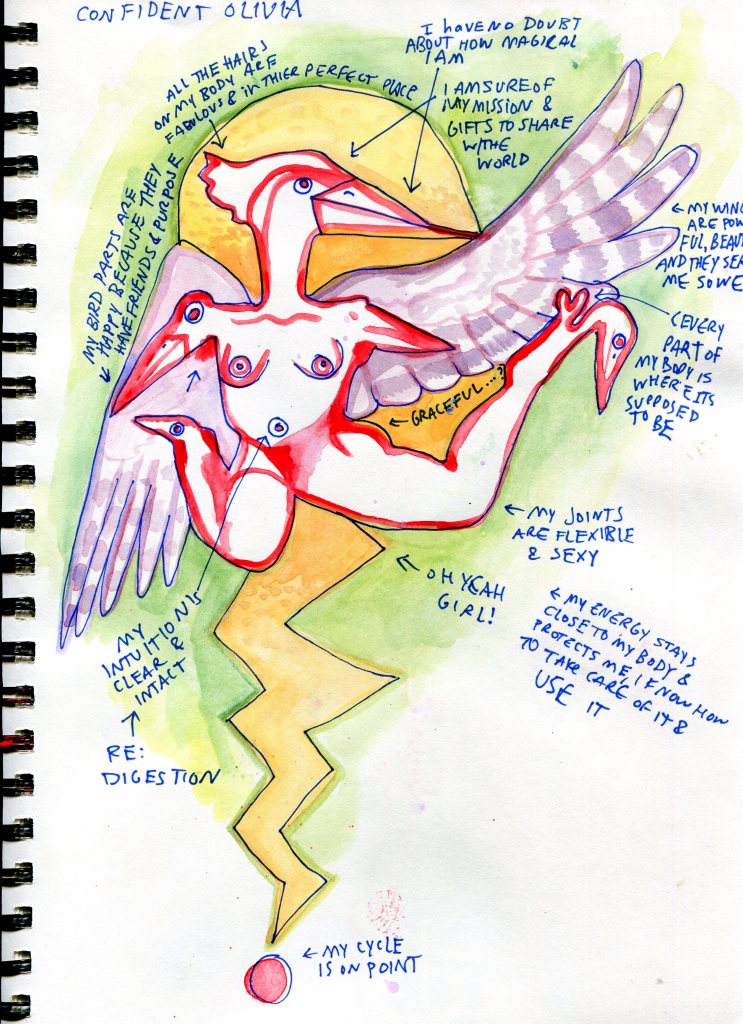 CONFIDENT OLIVIA
I HAVE NO DOUBT
ABOUT HOW MAGICAL
I AM
ALL THE HAIRS
ON MY BODY ARE
FABULOUS & IN THIER PERFECT PLACE
I AM SURE OF
MY MISSION &
GIFTS TO SHARE
W/THE
WORLD
MY BIRD PARTS ARE
HAPPY BECAUSE THEY
HAVE FRIENDS & PURPOSE
MY WING
ARE POW
FUL, BEAUT
AND THEY SER
ME SO WE
EVERY
PART OF
MY BODY IS
WHERE ITS
SUPPOSED
TO BE
GRACEFUL...
MY JOINTS
ARE FLEXIBLE
& SEXY
OH YEAH
GIRL!
MY ENERGY STAYS
CLOSE TO MY BODY &
PROTECTS ME, I KNOW HOW
TO TAKE CARE OF IT &
USE IT
MY
INTUITION IS
CLEAR &
INTACT
RE:
DIGESTION
MY CYCLE
IS ON POINT